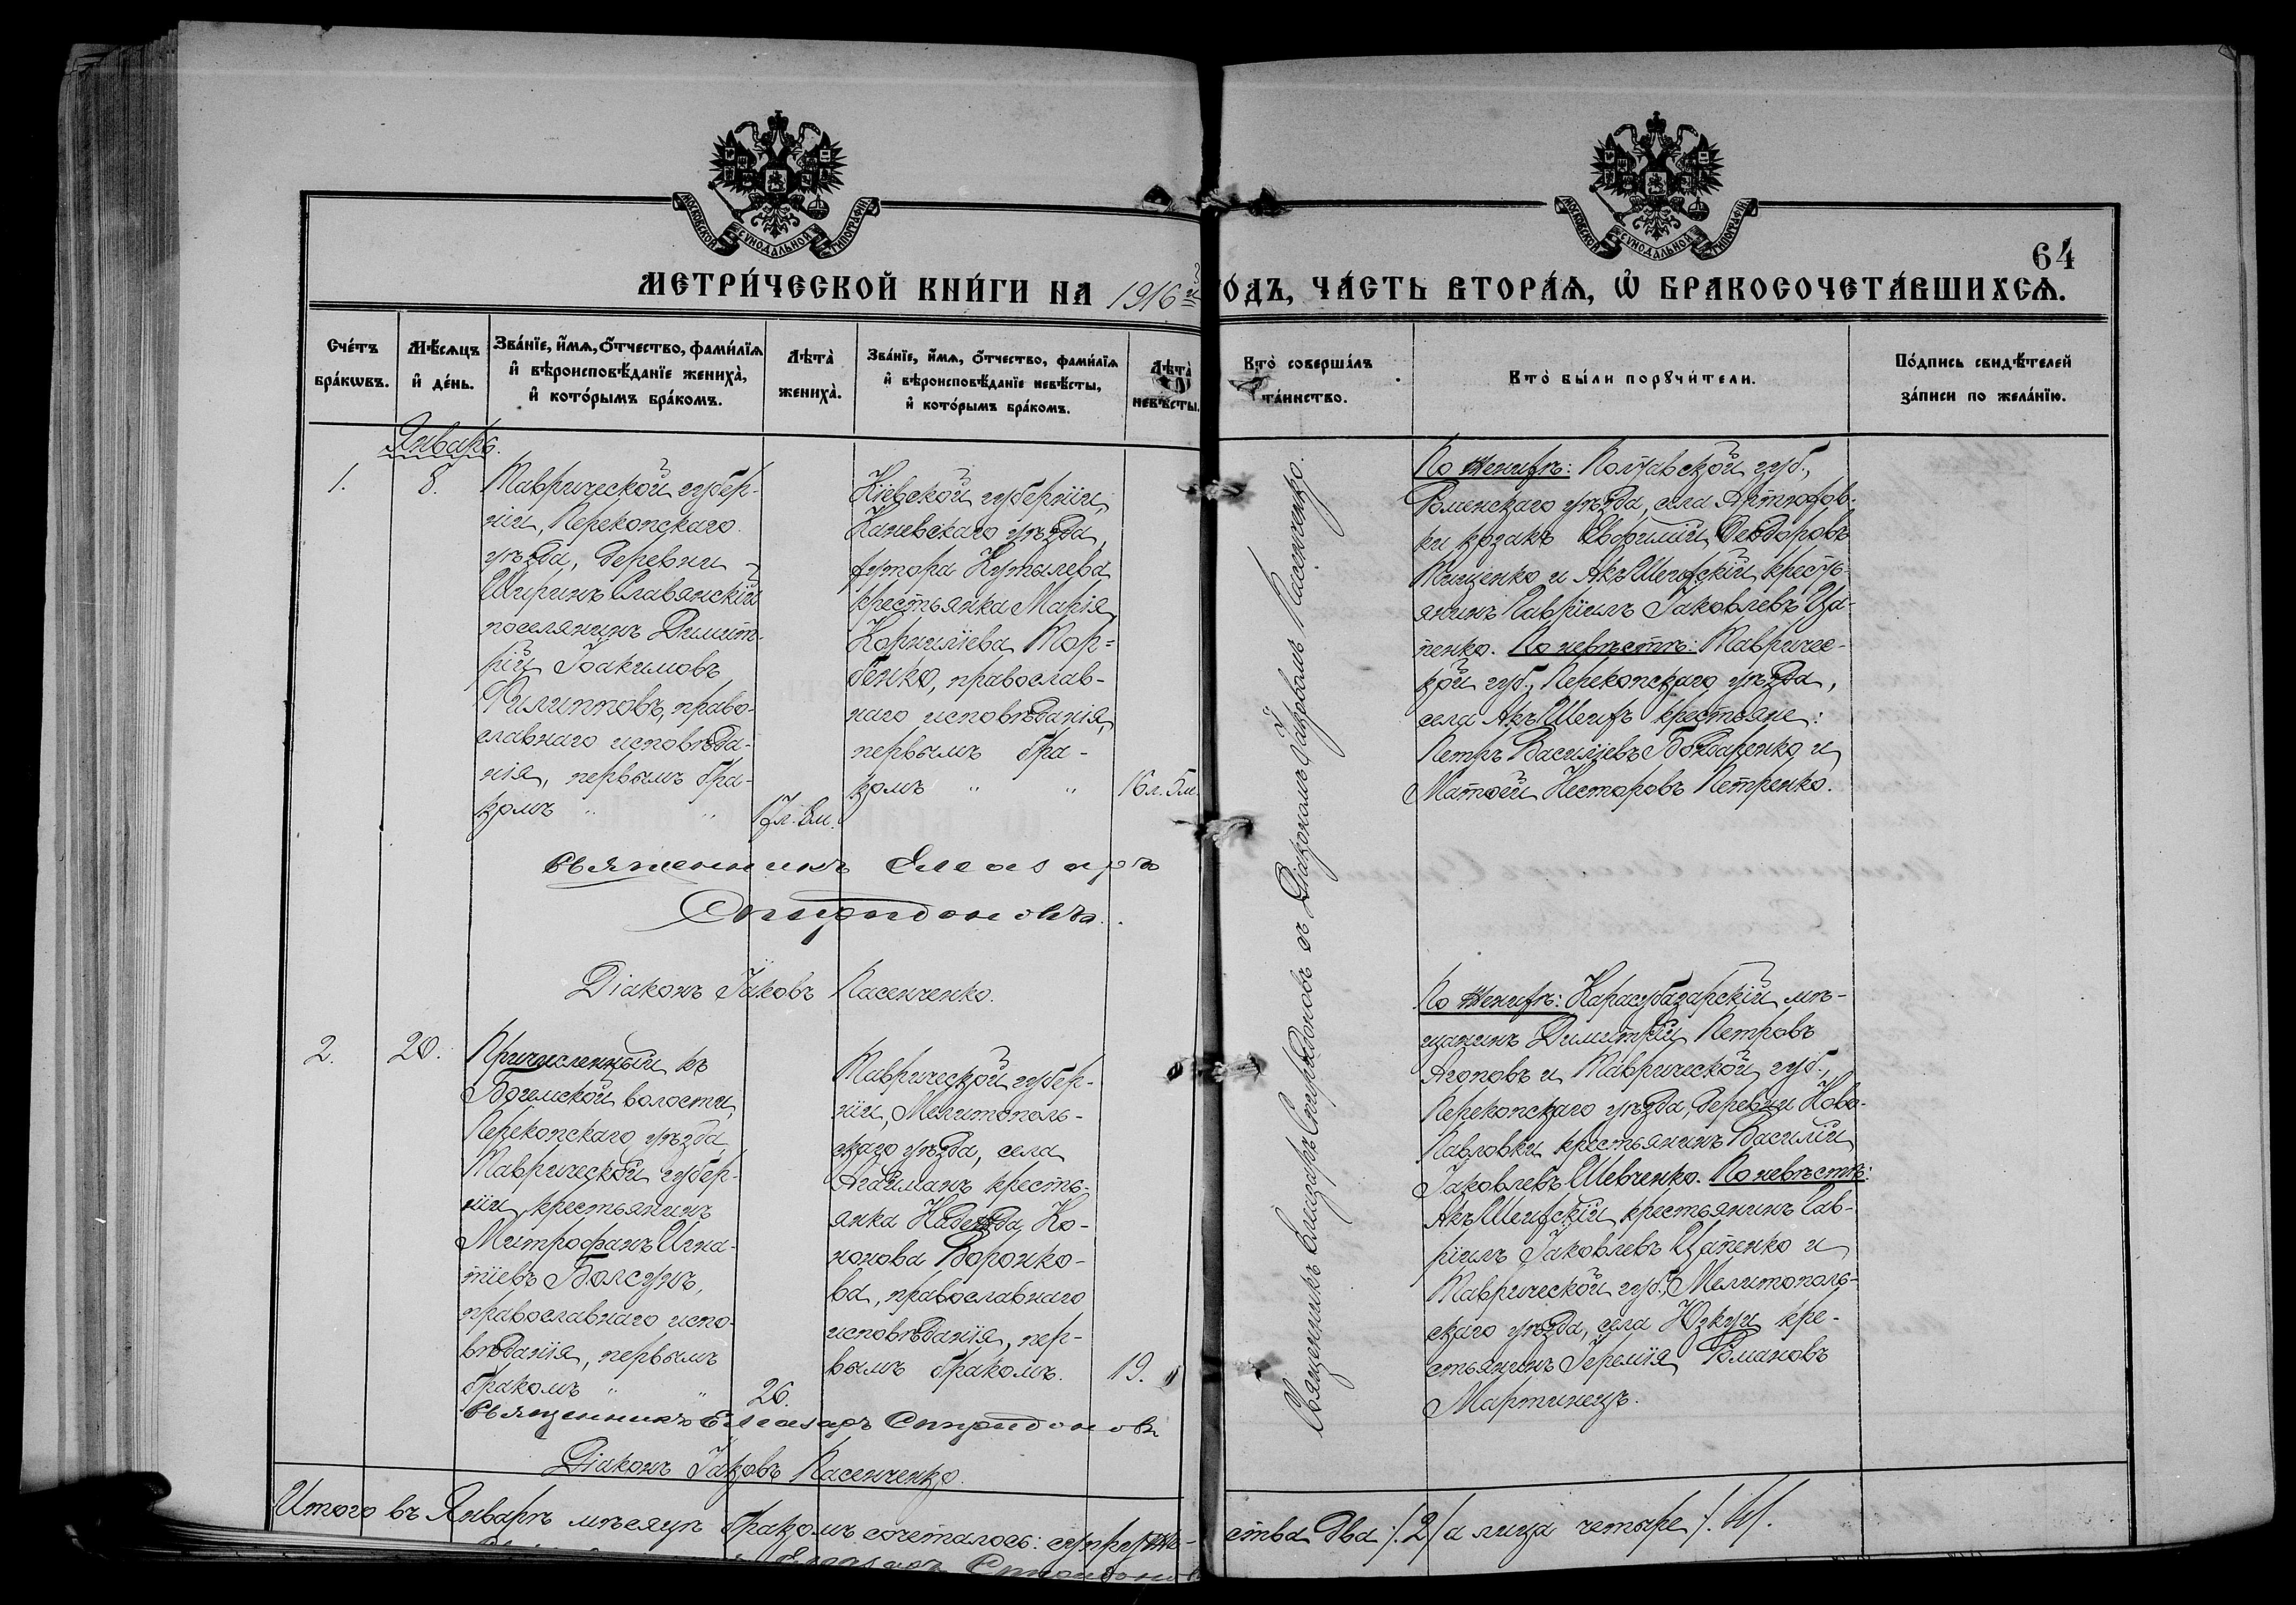 МОСКОВСКОЙ СѴНОДАЛЬНОЙ ТИПОГРАФІИ
МОСКОВСКОЙ СѴНОДАЛЬНОЙ ТИПОГРАФІИ
64
МЕТРИ́ЧЕСКОЙ КНИ́ГИ НА 1916й ГО́ДЪ, ЧА́СТЬ ВТОРА́Ѧ, Ѡ҆ БРАКОСОЧЕТА́ВШИХСѦ.
Сче́тъ
бра́кѡвъ.
Мѣ́сяцъ
и҆ де́нь.
Зва́нїе, и҆́мѧ, ѻ҆́тчество, фами́лїѧ
и҆ вѣроисповѣ́данїе жениха̀,
и҆ кото́рымъ бра́комъ.
Лѣ́та̀
жениха̀.
Зва́нїе, и҆́мѧ, ѻ҆́тчество, фами́лїѧ
и҆ вѣроисповѣ́данїе невѣ́сты,
и҆ кото́рымъ бра́комъ.
Лѣ́та̀
невѣ́сты.
Кто̀ соверша́лъ
та́инство.
Кто̀ бы́ли порꙋчи́тели.
По́дпись свидѣ́телей
за́писи по жела́нїю.
Январь.
1.
8.
Таврической губер-
ніи, Перекопскаго
уѣзда, деревни
Ширинъ Славянскій
поселянинъ Димит-
рій Іоакимовъ
Филипповъ, право-
славнаго исповѣда-
нія, первымъ бра-
комъ " "
17л. 8м.
Кіевской губерніи,
Каневскаго уѣзда,
хутора Кутылева
крестьянка Марія
Корниліева Тор-
бенко, православ-
наго исповѣданія,
первымъ бра-
комъ " "
16л. 5м.
Священникъ Елеазаръ Спиридоновъ съ Діакономъ Іаковомъ Пасенченко.
По женихѣ: Полтавской губ.,
Роменскаго уѣзда, села Артюхов-
ки козакъ Евфимій Ѳеодоровъ
Тищенко и Акъ Шейхскій кресть-
янинъ Гавріилъ Іаковлевъ Ца-
пенко. По невѣстѣ: Тавричес-
кой губ., Перекопскаго уѣзда,
села Акъ Шеихъ крестьяне:
Петръ Василіевъ Бондаренко и
Матѳей Несторовъ Петренко.
Священникъ Елеазаръ
Спиридоновъ.
Діаконъ Іаковъ Пасенченко.
2.
20.
Причисленный къ
Богемской волости,
Перекопскаго уѣзда
Таврической губер-
ніи, крестьянинъ
Митрофанъ Игна-
тіевъ Болсунъ,
православнаго испо-
вѣданія, первымъ
бракомъ " "
26.
Таврической губер-
ніи, Мелитополь-
скаго уѣзда, села
Агайманъ кресть-
янка Надежда Ко-
нонова Воронко-
ва, православнаго
исповѣданія, пер-
вымъ бракомъ.
19.
По женихѣ: Карасубазарскій мѣ-
щанинъ Димитрій Петровъ
Агоповъ и Таврической губ.,
Перекопскаго уѣзда, деревни Ново-
Павловки крестьянинъ Василій
Іаковлевъ Шевченко. По невѣстѣ:
Акъ Шеихскій крестьянинъ Гав-
ріилъ Іаковлевъ Цапенко и
Таврической губ., Мелитополь-
скаго уѣзда, села Юзкуи кре-
стьянинъ Іеремія Романовъ
Мартинецъ.
Священникъ Елеазаръ Спиридоновъ
Діаконъ Іаковъ Пасенченко.
Итого въ Январѣ мѣсяцѣ бракомъ сочеталось: супруже-
ства два /2/ а лица четыре /4/.
Елеазаръ Спиридоновъ